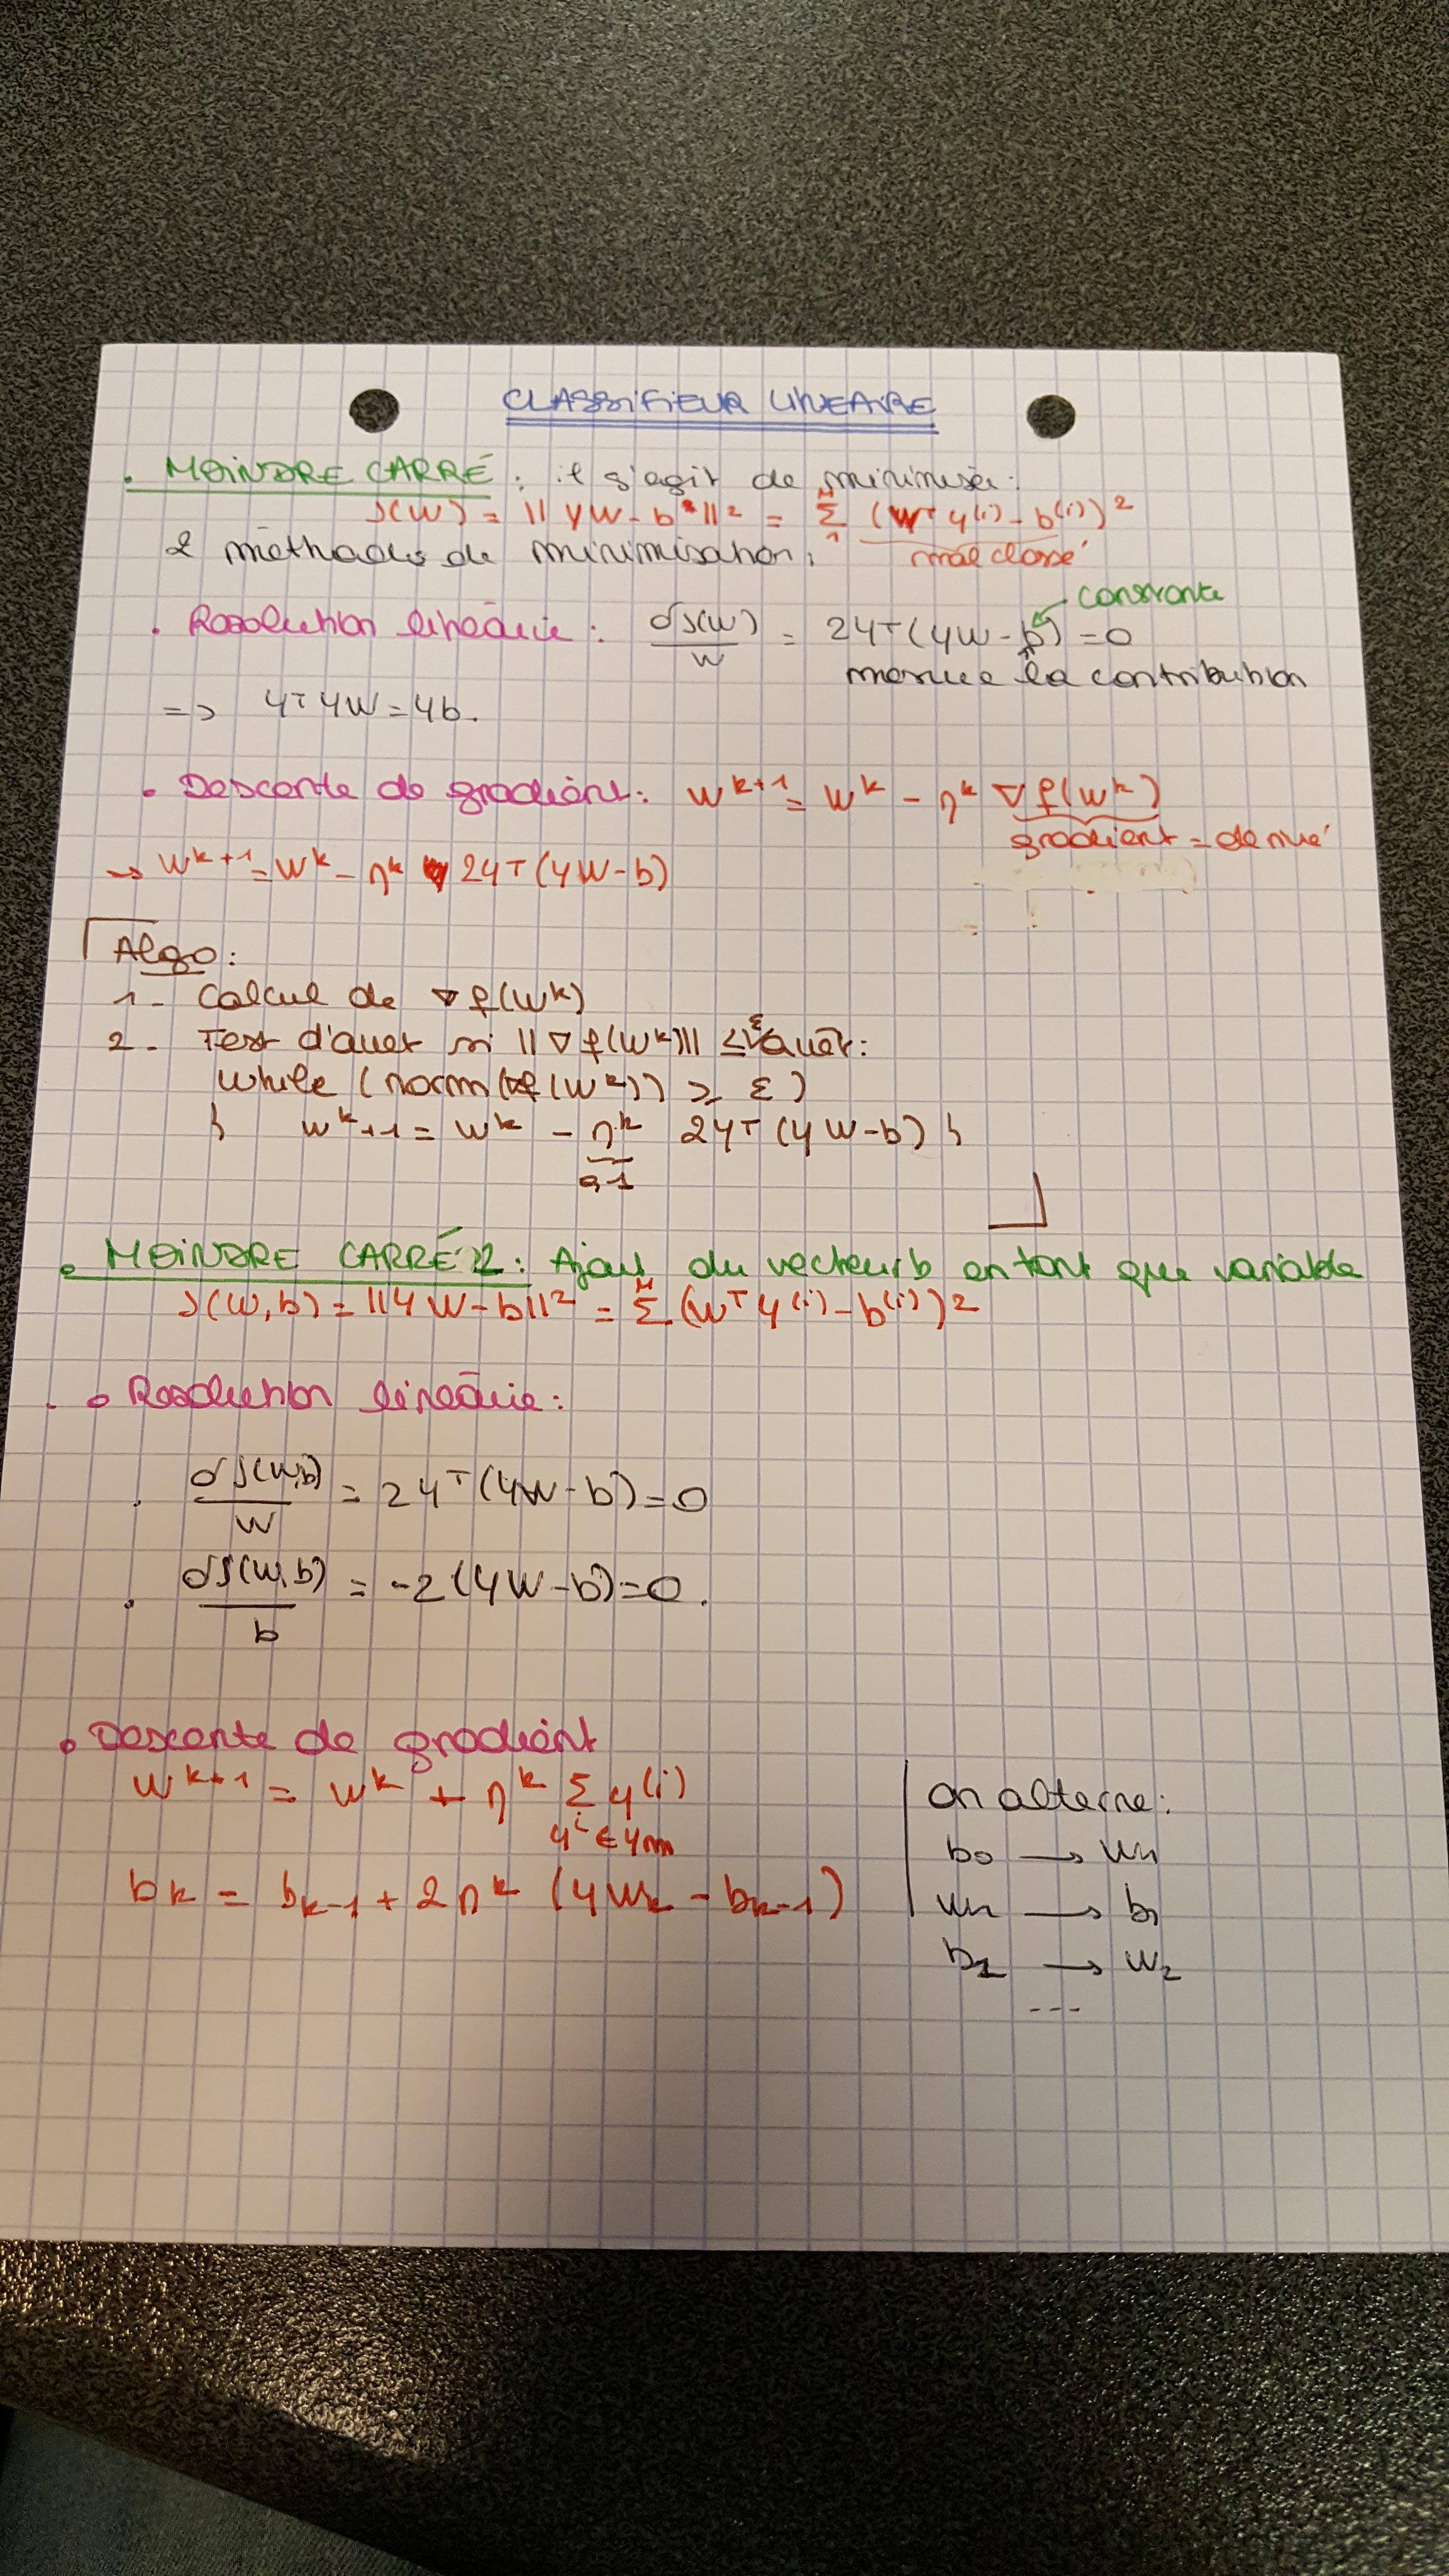 CLASSIFIEUR LINEAIRE
. MOINDRE CARRÉ : il s'agit de minimiser :
J(W) = ||YW - b||² = Σ₁ᴹ (Wᵀ y⁽ⁱ⁾ - b⁽ⁱ⁾)²
mal classé
2 méthodes de minimisation :
constante
. Résolution linéaire : dJ(W)/W = 2Yᵀ(YW - b) = 0
mesure la contribution
=> YᵀYW = Yb.
. Descente de gradient : W^{k+1} = W^k - η^k ∇f(W^k)
gradient = dérivé
→ W^{k+1} = W^k - η^k 2Yᵀ(YW - b)
Algo :
1- Calcul de ∇f(W^k)
2- Test d'arrêt si ||∇f(W^k)|| ≤ ε arrêt :
While (norm(∇f(W^k)) ≥ ε)
{ W^{k+1} = W^k - η^k 2Yᵀ(YW - b) }
0,1
. MOINDRE CARRÉ 2 : Ajout du vecteur b en tant que variable
J(W,b) = ||YW - b||² = Σᴹ (Wᵀ y⁽ⁱ⁾ - b⁽ⁱ⁾)²
. Résolution linéaire :
. dJ(W,b)/W = 2Yᵀ(YW - b) = 0
. dJ(W,b)/b = -2(YW - b) = 0.
. Descente de gradient
W^{k+1} = W^k + η^k Σ y⁽ⁱ⁾
yⁱ ∈ Ym
b_k = b_{k-1} + 2η^k (YW_k - b_{k-1})
On alterne :
b₀ → W₁
W₁ → b₁
b₁ → W₂
---